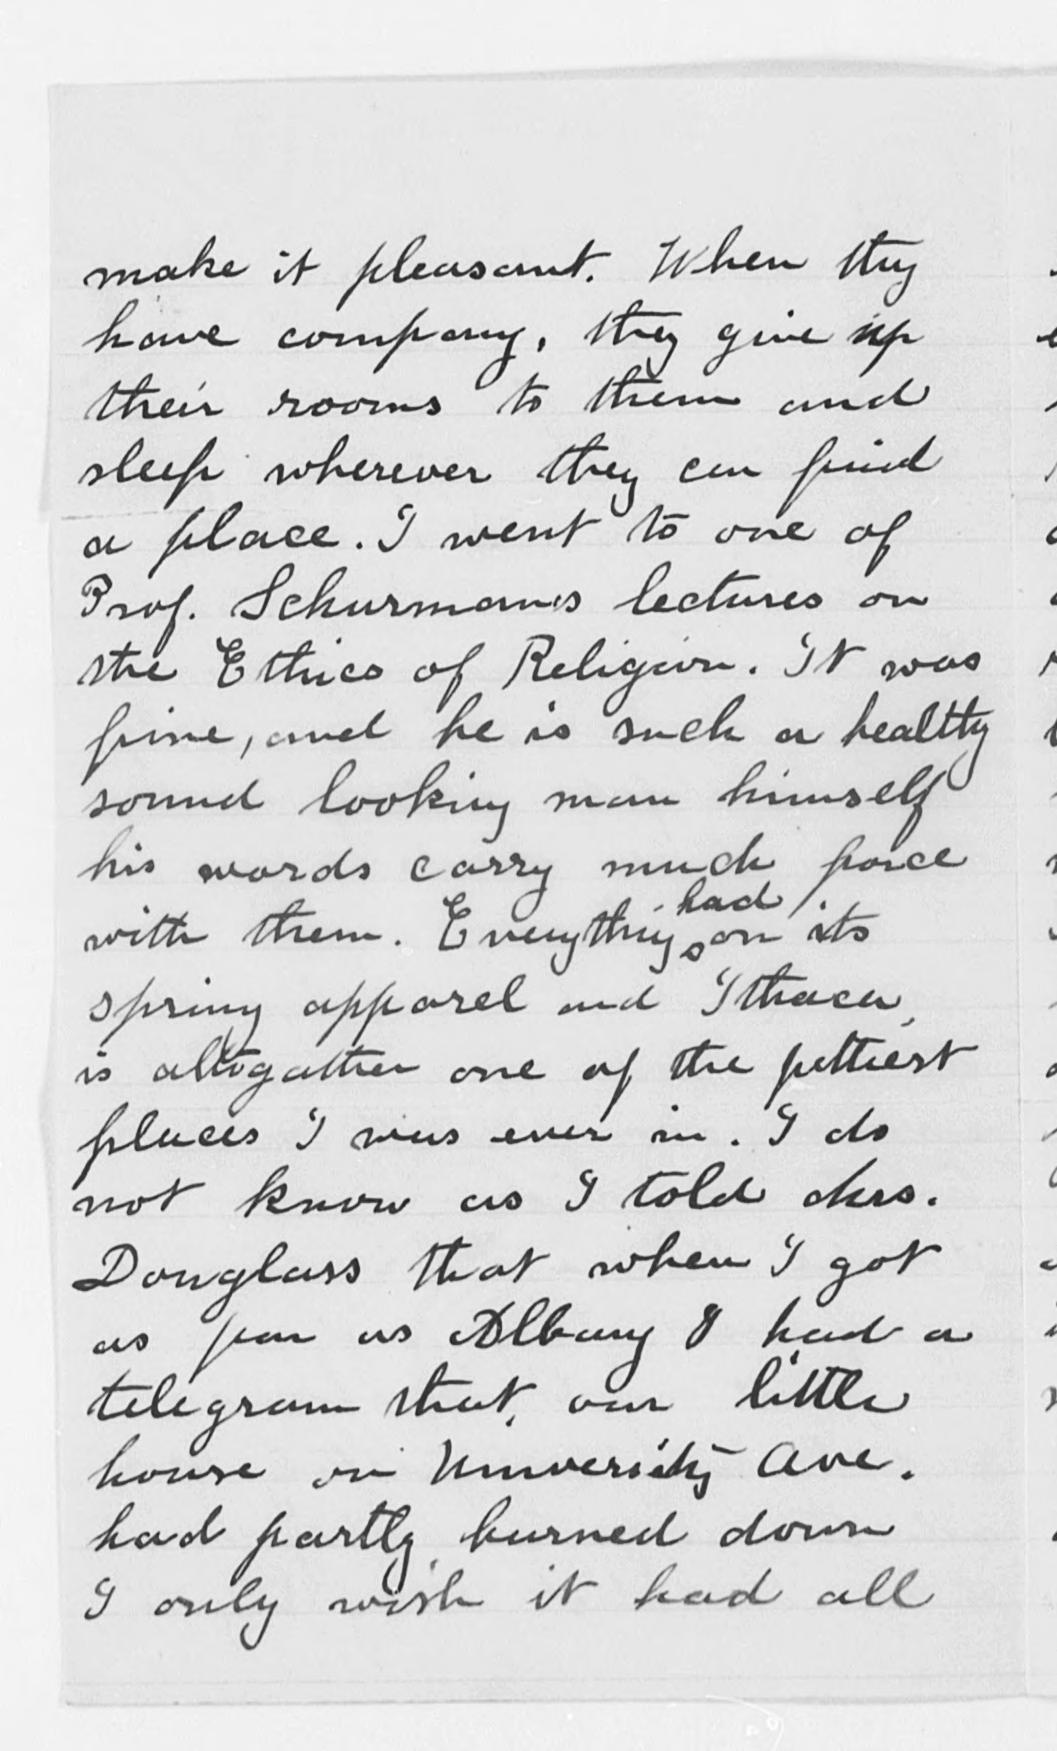 make it pleasant. When they
have company, they give up
their rooms to them and
sleep wherever they can find
a place. I went to one of
Prof. Schurmans lectures on
the Ethics of Religion. It was
fine, and he is such a healthy
sound looking man himself
his words carry much force
had
with them. Everything on its
spring apparel and Ithaca
is altogather one of the pettiest
places I was ever in. I do
not know as I told Mrs.
Douglass that when I got
as far as Albany I had a
telegram that, our little
house on University Ave.
had partly burned down
I only wish it had all